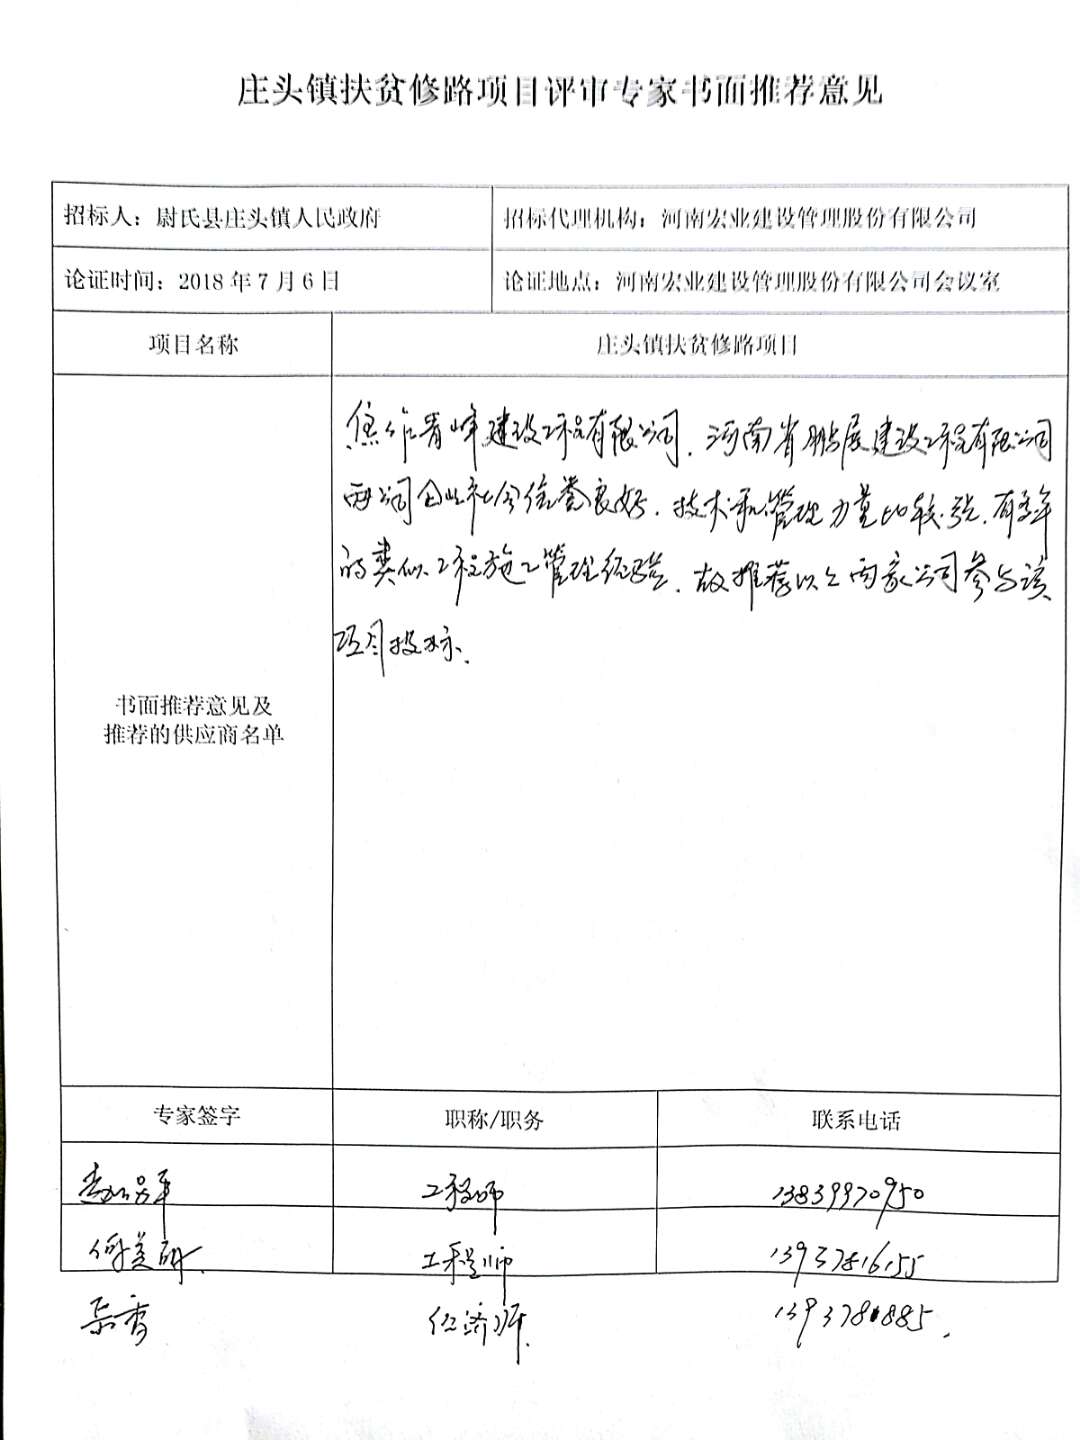 庄头镇扶贫修路项目评审专家书面推荐意见
招标人：尉氏县庄头镇人民政府 招标代理机构：河南宏业建设管理股份有限公司
论证时间：2018年7月6日 论证地点：河南宏业建设管理股份有限公司会议室
项目名称 庄头镇扶贫修路项目
书面推荐意见及
推荐的供应商名单
焦作青峰建设工程有限公司、河南省鹏展建设工程有限公司
两公司企业社会信誉良好、技术和管理力量比较强、有多年
的类似工程施工管理经验、故推荐以上两家公司参与该
项目投标、
专家签字 职称/职务 联系电话
工程师 13839970950
何美研 工程师 13937816155
经济师